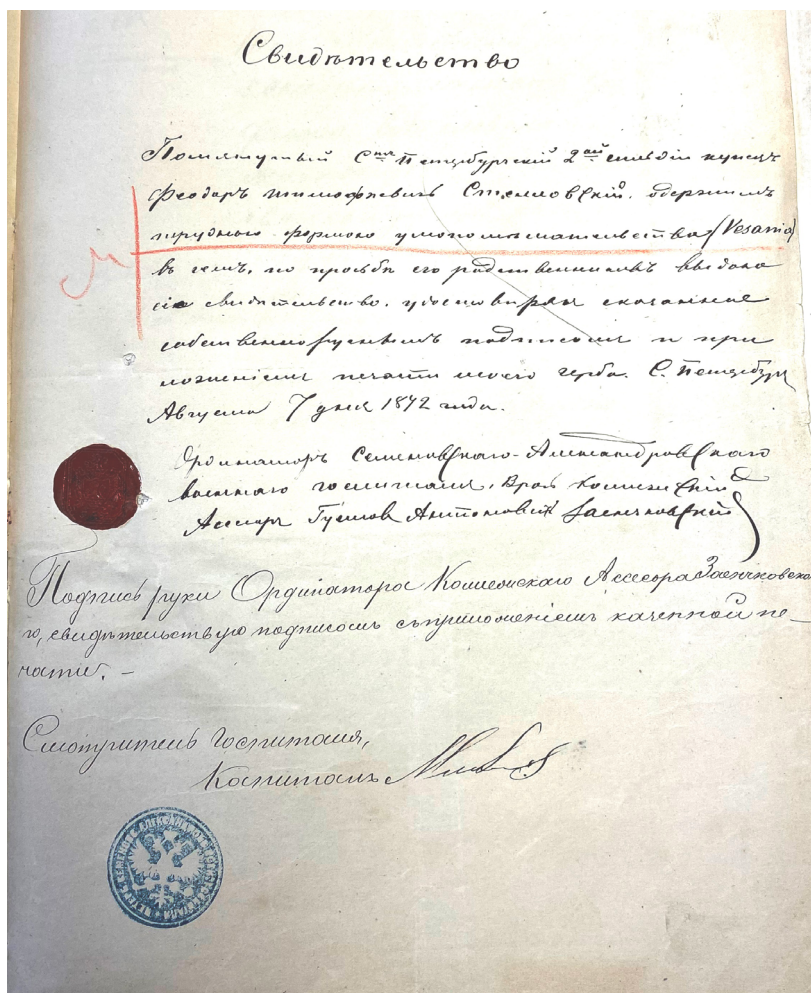 Свидѣтельство
Помянутый С<sup>пк</sup> Петербургскій 2<sup>ой</sup> гильдіи купецъ
Феодоръ Тимофѣевичъ Стелловскій. одержимъ
формою умопомѣшательства (Vesania)
въ чемъ, по просьбѣ его родственниковъ выдано
сіе свидѣтельство. удостовѣряя сказанное
собственноручнымъ подписомъ и при
ложеніемъ печати моего герба. С. Петербургъ
Августа 7 дня 1872 года.
Ординаторъ Семеновскаго-Александровскаго
военнаго госпиталя. Врач Коллежскій
Ассесоръ Густав Антоновичъ Заенчковскій
Подпись руки Ординатора Коллежскаго Ассесора Заенчковска-
го, свидѣтельствую подписомъ съ приложеніемъ казенной пе-
чати. –
Смотритель Госпиталя,
Капитанъ